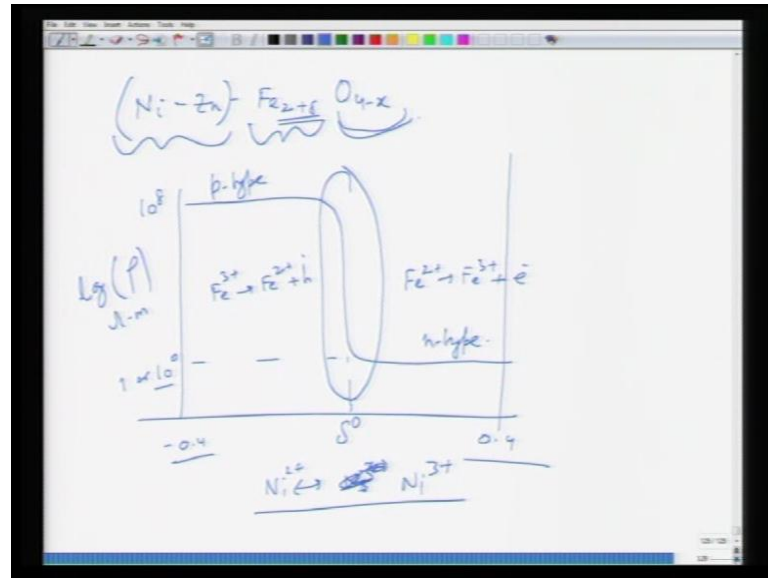 File Edit View Insert Actions Tools Help
(Ni-Zn)- Fe₂₊δ O₄₋ₓ
10⁸ p-type
log(ρ)
Ω-m
Fe³⁺→Fe²⁺+h
Fe²⁺→Fe³⁺+e⁻
n-type.
1 or 10⁰
-0.4 δ⁰ 0.4
Ni²⁺↔ Ni³⁺